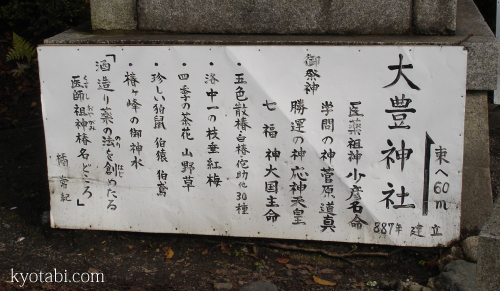 大豊神社
東へ60m
887年 建立
医薬祖神 少彦名命
学問の神 菅原道真
御祭神
勝運の神 応神天皇
七福神大国主命
・五色散椿白椿侘助他30種
・洛中一の枝垂紅梅
・四季の茶花 山野草
・珍しい狛鼠 狛猿 狛鳶
・椿ヶ峰の御神水
「酒造り薬の法を創めたる
医師祖神椿名どころ」
kyotabi.com